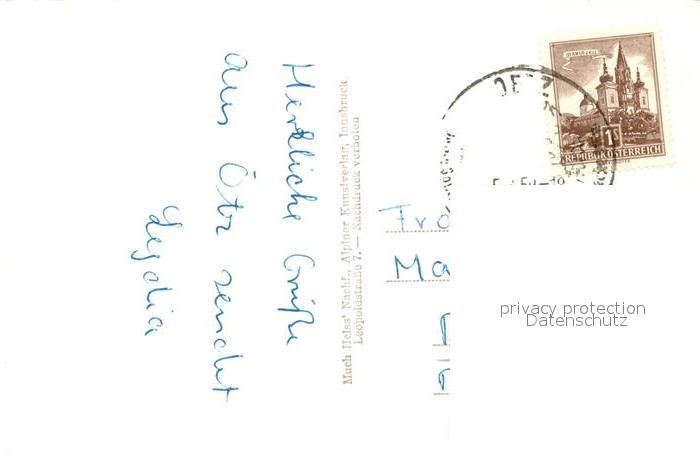 Herzliche Grüße
aus Ötz sendet
Much Heiss' Nachf., Alpiner Kunstverlag, Innsbruck,
Leopoldstraße 7. — Nachdruck verboten
OETZ
MARIAZELL
1S
REPUBLIK ÖSTERREICH
Fra
Ma
privacy protection
Datenschutz